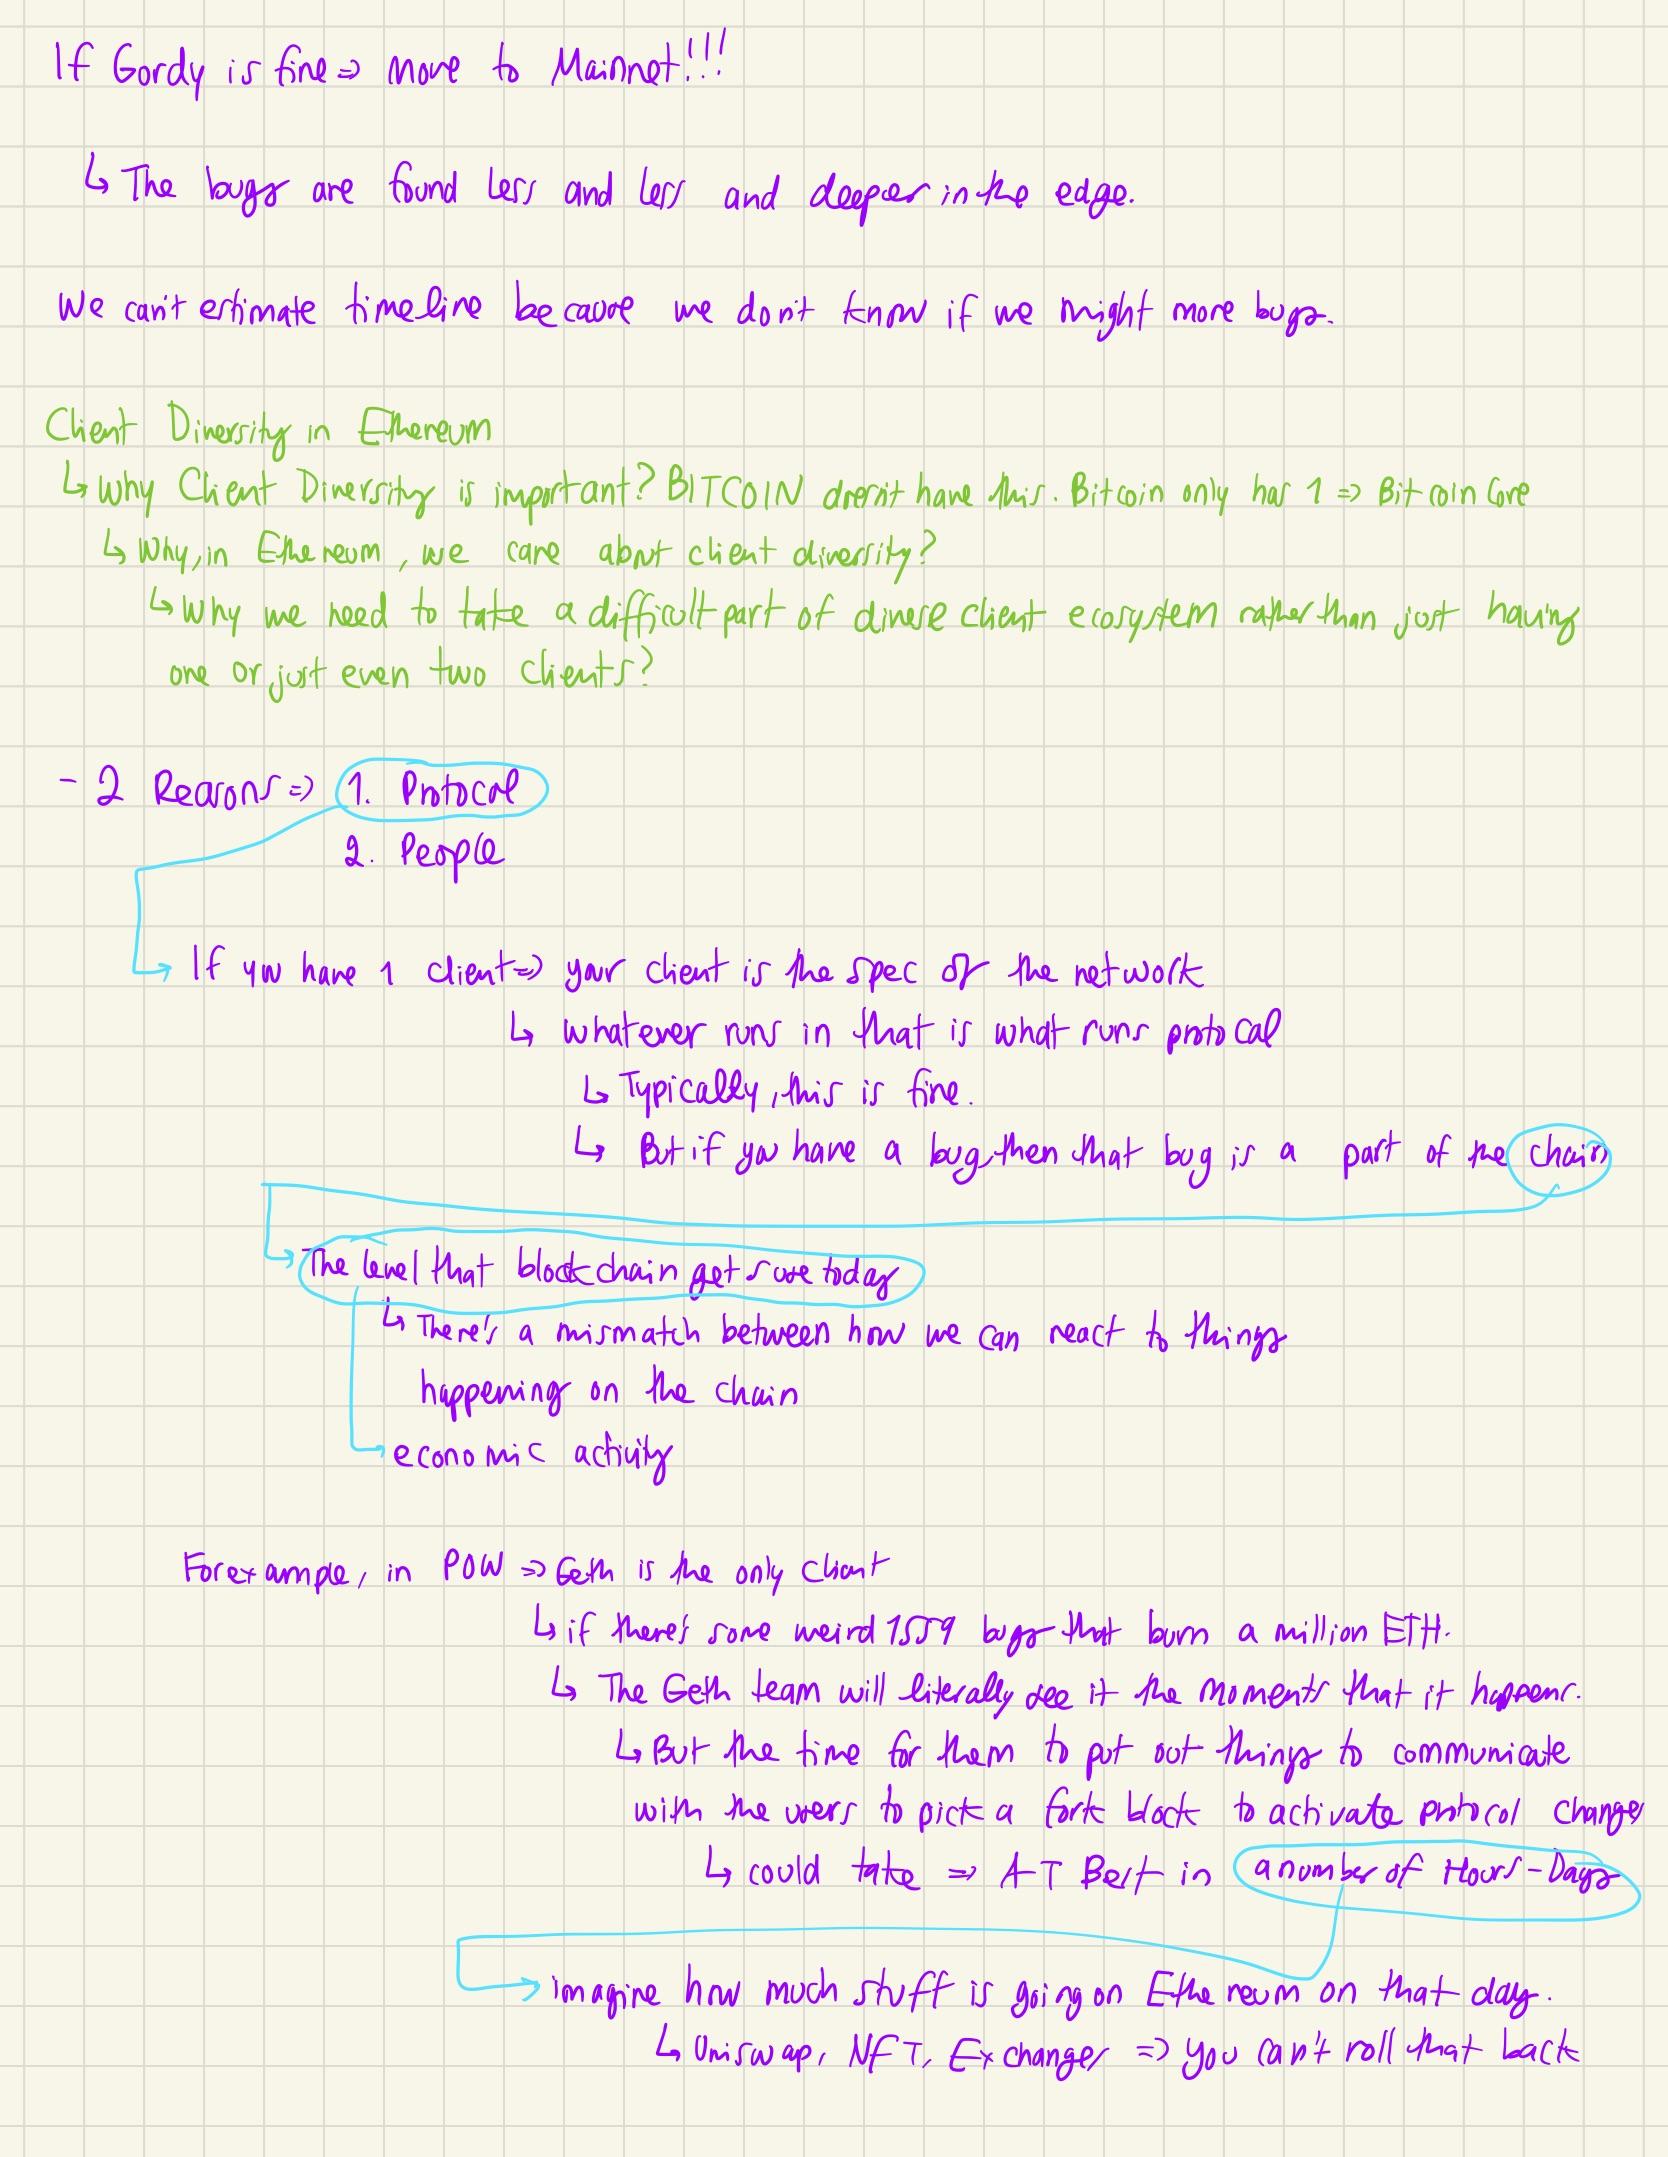 If Gordy is fine => move to Mainnet!!!
↳ The bugs are found less and less and deeper in the edge.
We can't estimate timeline because we don't know if we might more bugs.
Client Diversity in Ethereum
↳ Why Client Diversity is important? BITCOIN doesn't have this. Bitcoin only has 1 => Bitcoin Core
↳ Why, in Ethereum, we care about client diversity?
↳ Why we need to take a difficult part of diverse client ecosystem rather than just having
one or just even two clients?
- 2 Reasons => 1. Protocal
2. People
→ If you have 1 client => your client is the spec of the network
↳ whatever runs in that is what runs protocal
↳ Typically, this is fine.
↳ But if you have a bug, then that bug is a part of the chain
→ The level that blockchain get sure today
↳ There's a mismatch between how we can react to things
happening on the chain
→ economic activity
For example, in POW => Geth is the only client
↳ if there's some weird 1559 bugs that burn a million ETH.
↳ The Geth team will literally see it the moments that it happens.
↳ But the time for them to put out things to communicate
with the users to pick a fork block to activate protocol changes
↳ could take => AT Best in a number of Hours - Days
→ imagine how much stuff is going on Ethereum on that day.
↳ Uniswap, NFT, Exchanges => you can't roll that back